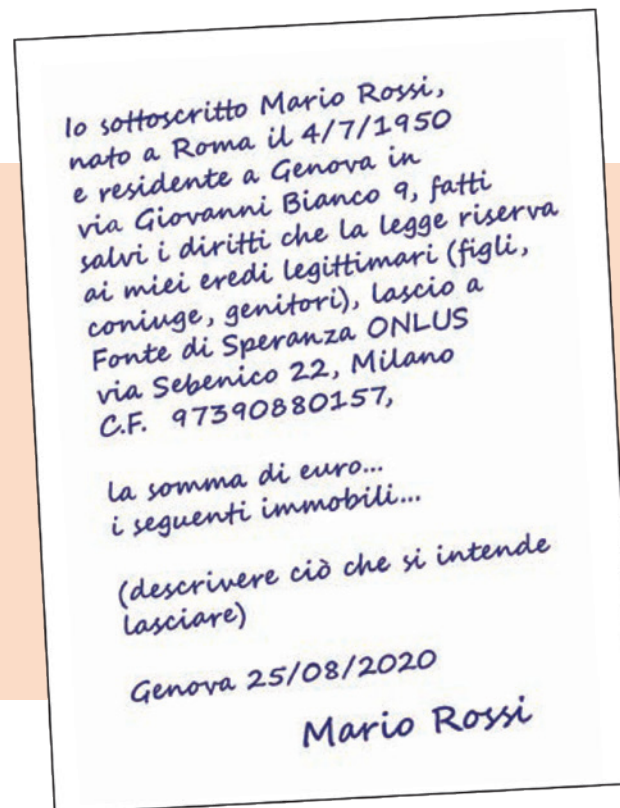 Io sottoscritto Mario Rossi,
nato a Roma il 4/7/1950
e residente a Genova in
via Giovanni Bianco 9, fatti
salvi i diritti che la legge riserva
ai miei eredi legittimari (figli,
coniuge, genitori), lascio a
Fonte di Speranza ONLUS
via Sebenico 22, Milano
C.F. 97390880157,
la somma di euro...
i seguenti immobili...
(descrivere ciò che si intende
lasciare)
Genova 25/08/2020
Mario Rossi